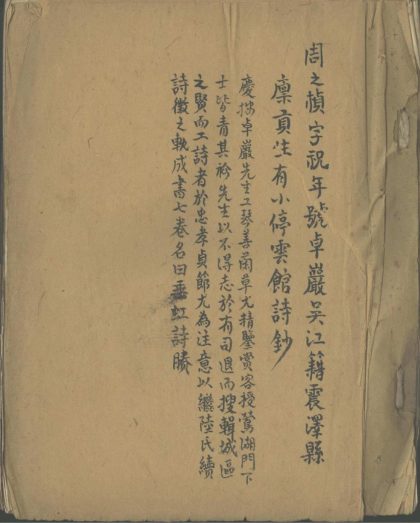 周之楨字祝年號卓巖吳江籍震澤縣
廩貢生有小停雲館詩鈔
慶㧾卓巖先生工琴善蘭草尤精鑒賞客授鶯湖門下
士皆青其衿先生以不得志於有司退而搜輯城區
之賢而工詩者於忠孝貞節尤為注意以繼陸氏續
詩徵之軼成書七卷名曰垂虹詩賸